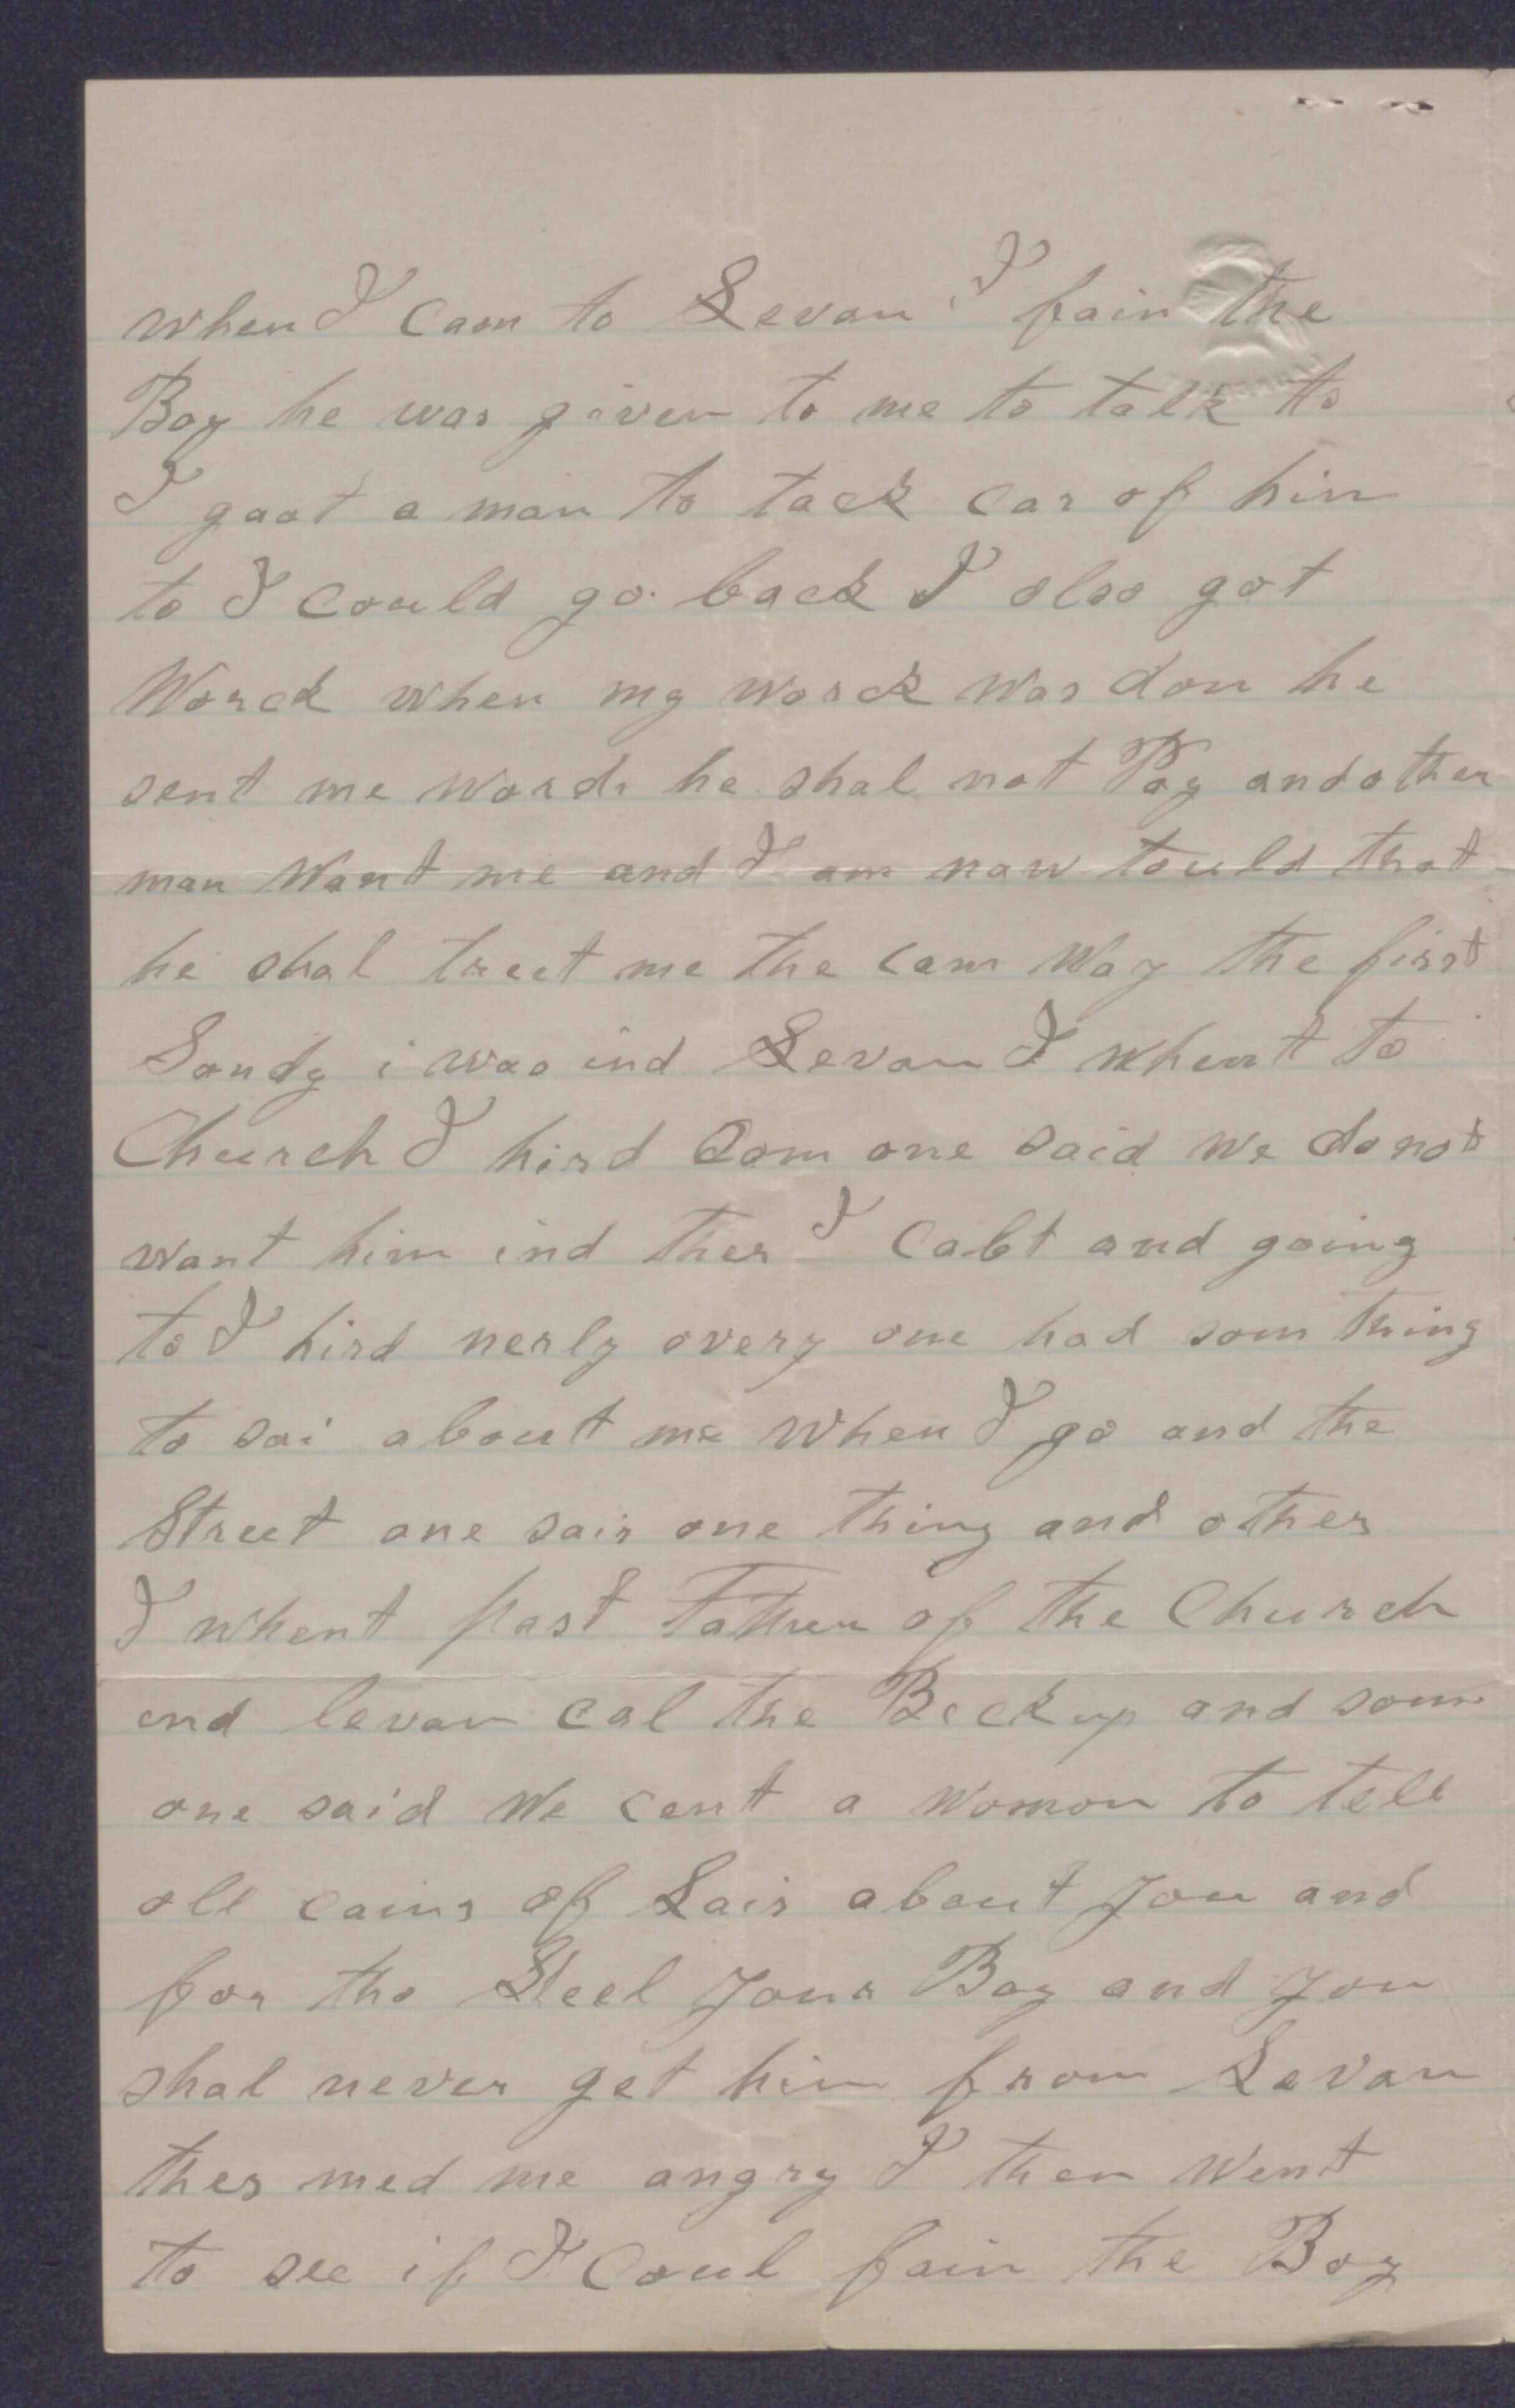 when I cam to Levan I fain the
Boy he was given to me to talk to
I gaat a man to tack car of him
to I could go back I also got
Worck when my worck was don he
sent me word he shal not Pay and other
man Want me and I am naw tould that
he shal treet me the cam Way the first
Sondy i was ind Levan I whent to
Church I hird Som one said we do not
want him ind ther I cabt and going
to I hird nerly overy one had som thing
to sai about me when I go and the
Street one sais one thing and other
I whent past of the Church
ind levan cal the Beckup and som
one said We cent a womon to tell
all cains of Lais about you and
for tho Steel your Boy and you
shal never get him from Levan
thes med me angry I then went
to see if I Coul fain the Boy